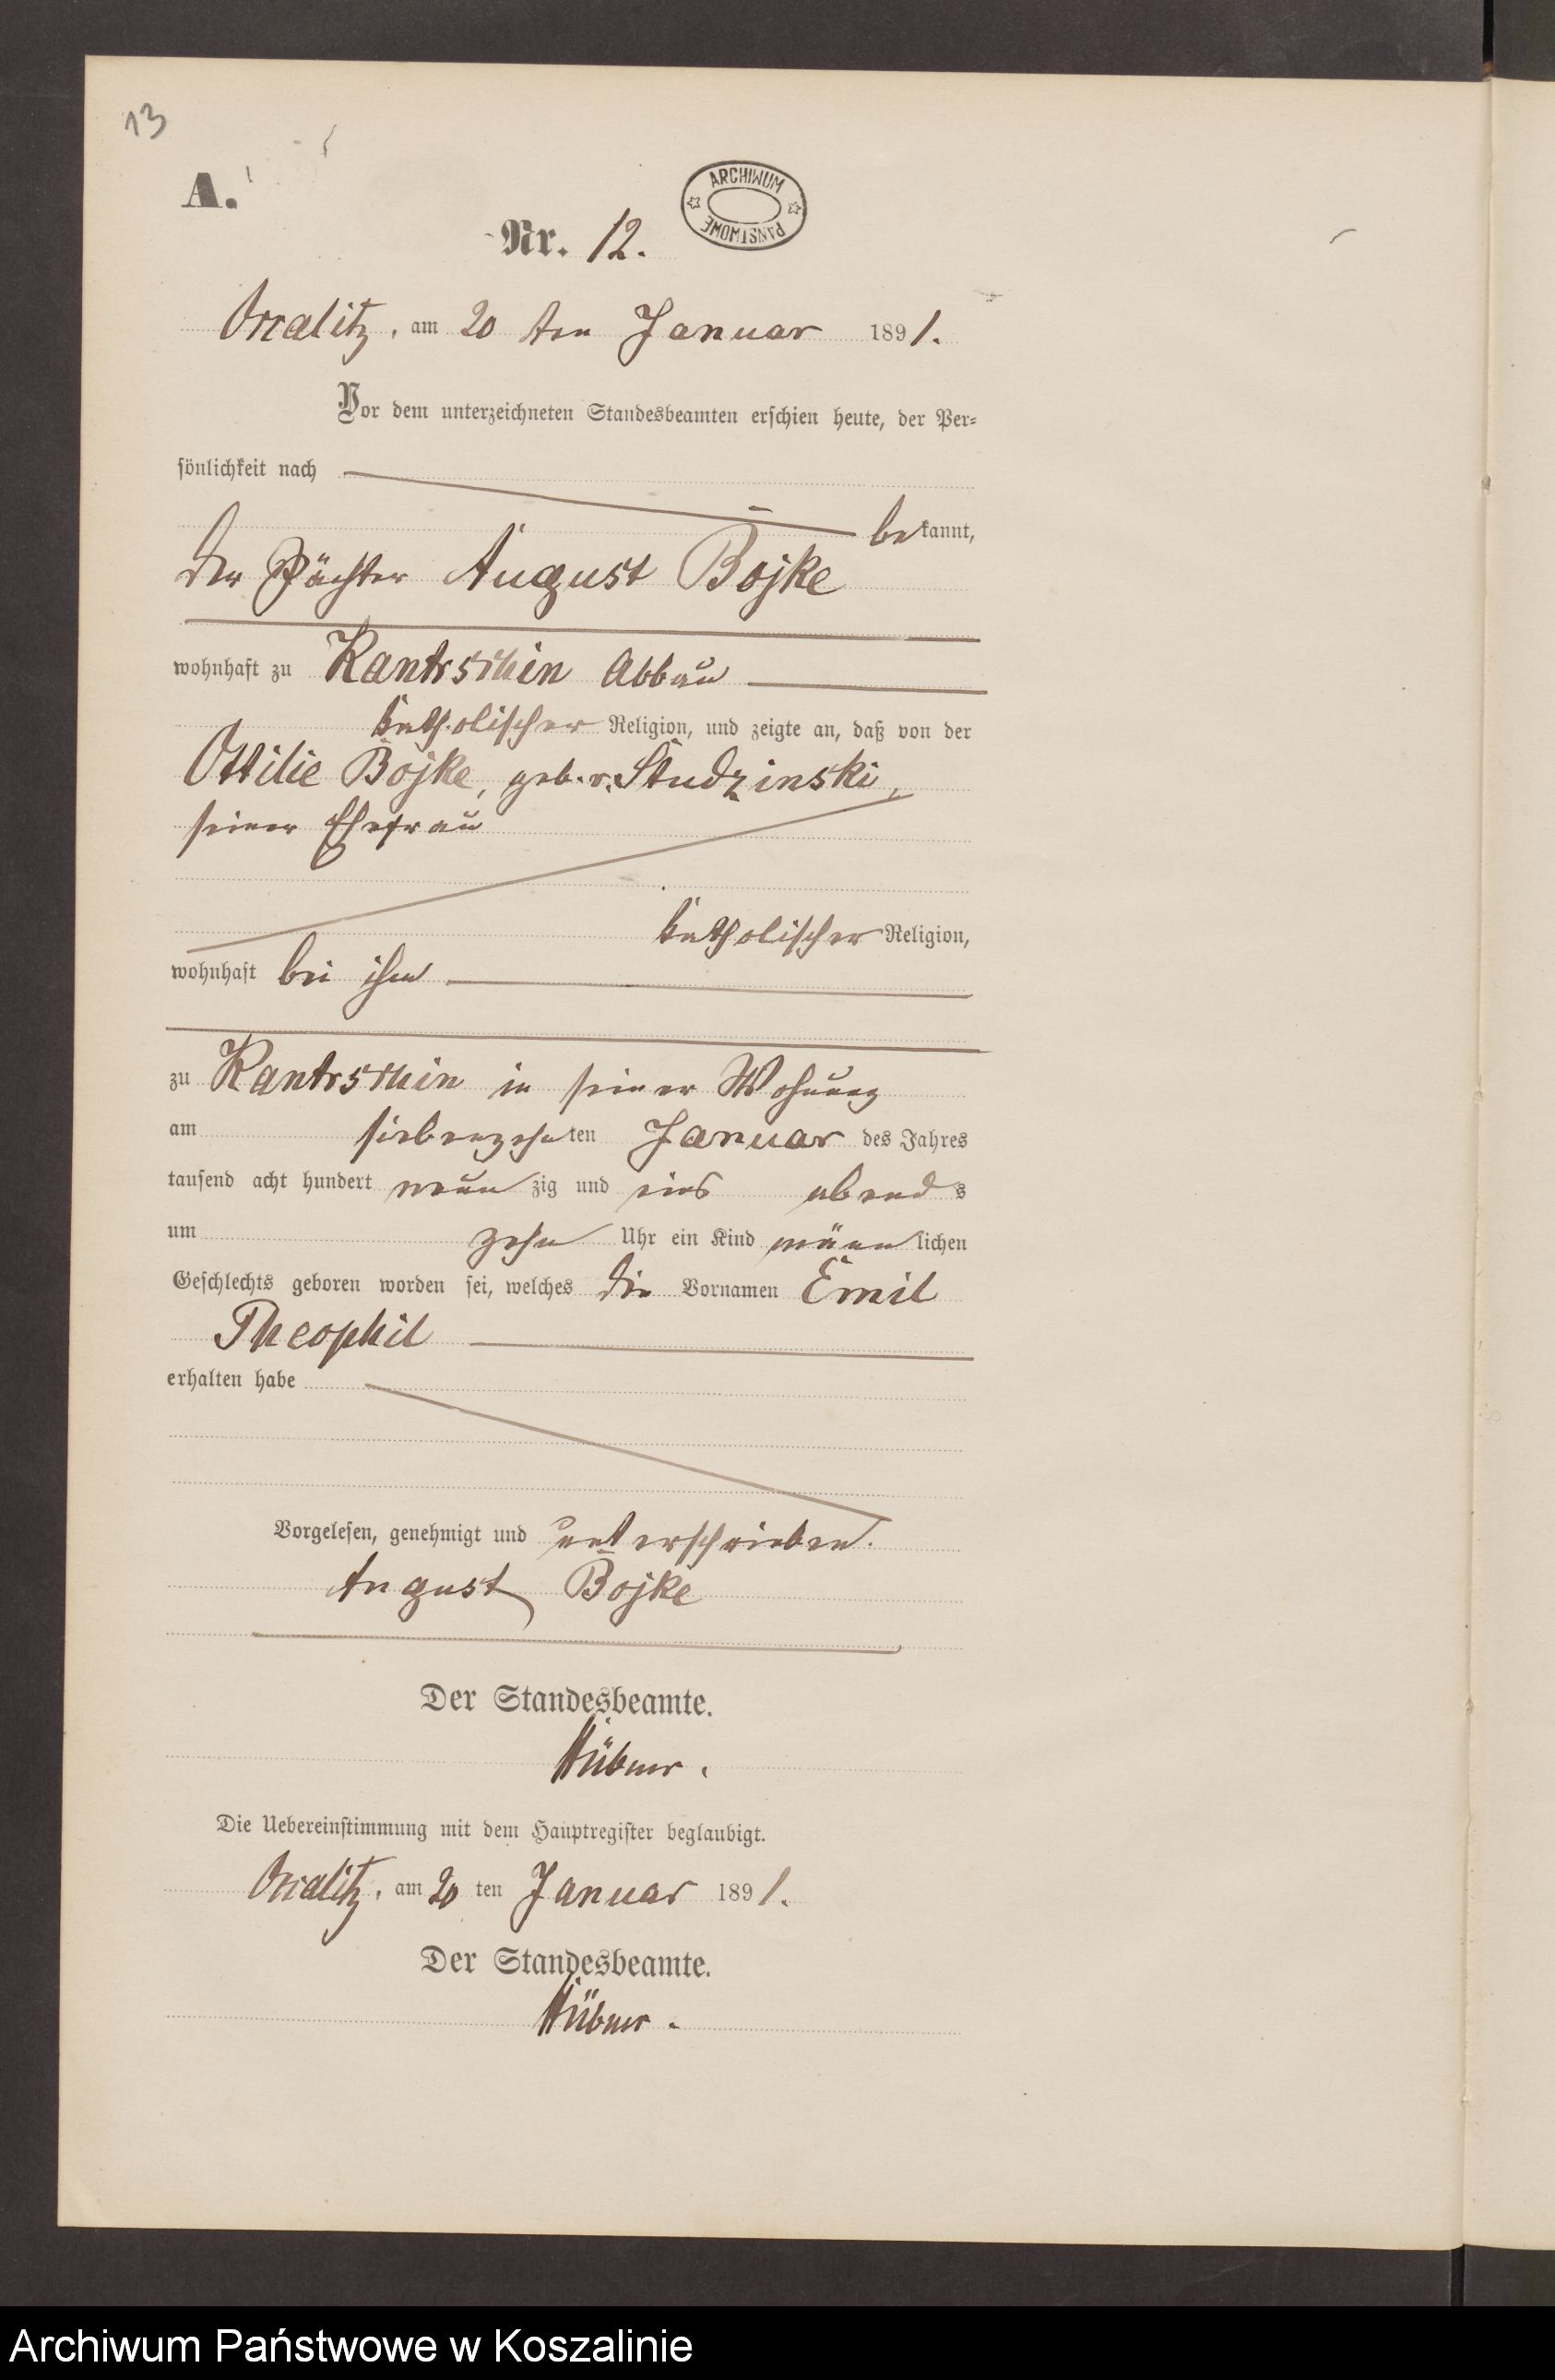 13
A.
ARCHIWUM PAŃSTWOWE
Nr. 12.
am 20 ten Januar 1891.
Vor dem unterzeichneten Standesbeamten erschien heute, der Per-
sönlichkeit nach
bekannt,
der Pächter August Bojke
wohnhaft zu Kantrschin Abbau
katholischer Religion, und zeigte an, daß von der
Ottilie Bojke, geb. v. Studzinski,
seiner Ehefrau
katholischer Religion,
wohnhaft bei ihm
zu Kantrschin in seiner Wohnung
am siebenzehnten Januar des Jahres
tausend acht hundert neunzig und eins abends
um zehn Uhr ein Kind männlichen
Geschlechts geboren worden sei, welches die Vornamen Emil
Theophil
erhalten habe
Vorgelesen, genehmigt und unterschrieben.
August Bojke
Der Standesbeamte.
Hübner.
Die Uebereinstimmung mit dem Hauptregister beglaubigt.
am 20 ten Januar 1891.
Der Standesbeamte.
Hübner.
Archiwum Państwowe w Koszalinie